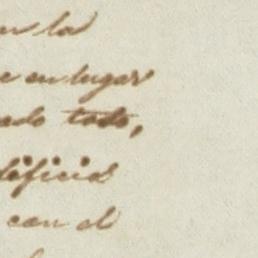 en la
e en lugar
ado todo,
dificid
con el